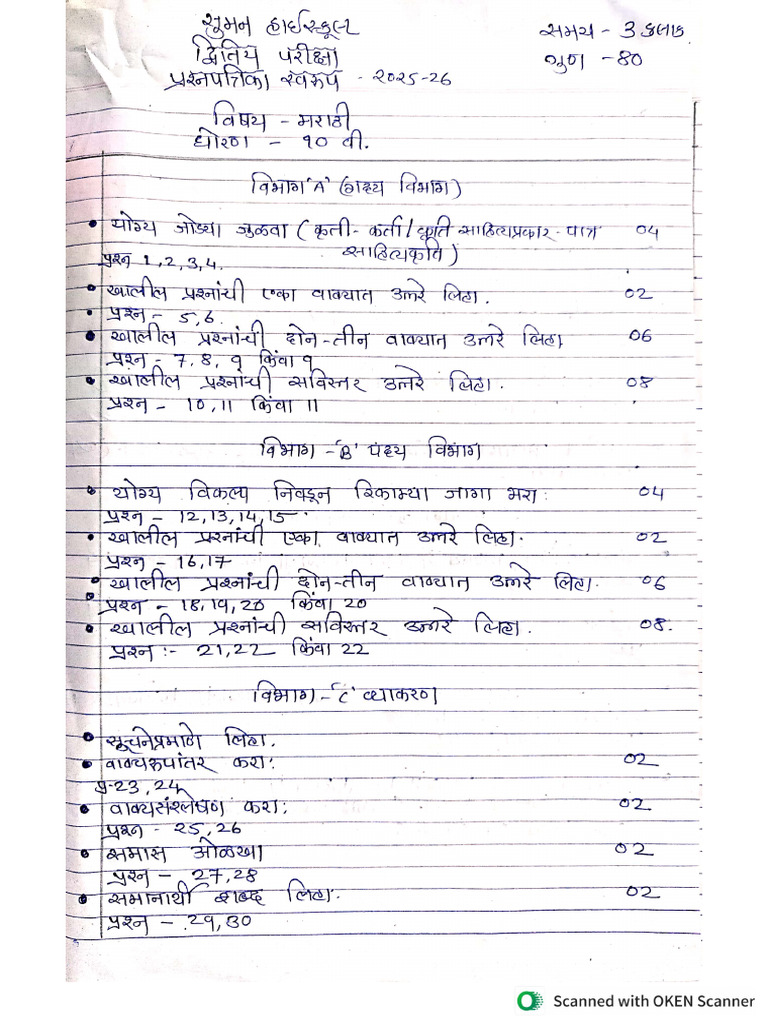 सुमन हाईस्कूल
समय - 3 कलाक
द्वितिय परीक्षा
गुण - 80
प्रश्नपत्रिका स्वरुप - २०२5-26
विषय - मराठी
धोरण - १० वी.
विभाग 'A' (गद्य विभाग)
योग्य जोड्या जुळवा ( कृती - कर्ता / कृति साहित्यप्रकार - पात्र 04
साहित्यकृति )
प्रश्न 1, 2, 3, 4.
खालील प्रश्नांची एका वाक्यात उत्तरे लिहा. 02
प्रश्न - 5, 6.
खालील प्रश्नांची दोन-तीन वाक्यात उत्तरे लिहा 06
प्रश्न - 7, 8, ९ किंवा ९
खालील प्रश्नांची सविस्तर उत्तरे लिहा. 08
प्रश्न - 10, 11 किंवा 11
विभाग - 'B' पद्य विभाग
योग्य विकल्प निवडून रिकाम्या जागा भरा: 04
प्रश्न - 12, 13, 14, 15
खालील प्रश्नांची एका वाक्यात उत्तरे लिहा. 02
प्रश्न - 16, 17
खालील प्रश्नांची दोन-तीन वाक्यात उत्तरे लिहा. 06
प्रश्न - 18, 19, 20 किंवा 20
खालील प्रश्नांची सविस्तर उत्तरे लिहा. 08.
प्रश्न :- 21, 22 किंवा 22
विभाग - 'C' व्याकरण
सूचनेप्रमाणे लिहा.
वाक्यरुपांतर करा: 02
प्र-23, 24
वाक्यसंश्लेषण करा: 02
प्रश्न - 25, 26
समास ओळखा 02
प्रश्न - 27, 28
समानार्थी शब्द लिहा. 02
प्रश्न - 29, 30
Scanned with OKEN Scanner